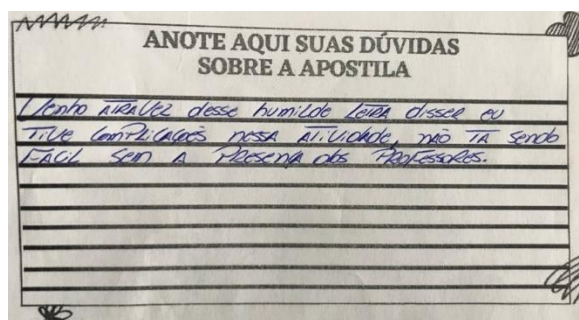 ANOTE AQUI SUAS DÚVIDAS
SOBRE A APOSTILA
Venho ATRAVEZ desse humilde LETRA disser eu
TIVE COMPLICAÇOÊS nessa ATIVIDADE, não TÁ sendo
FACIL Sem A PRESENÇA dos PROFESSORES.